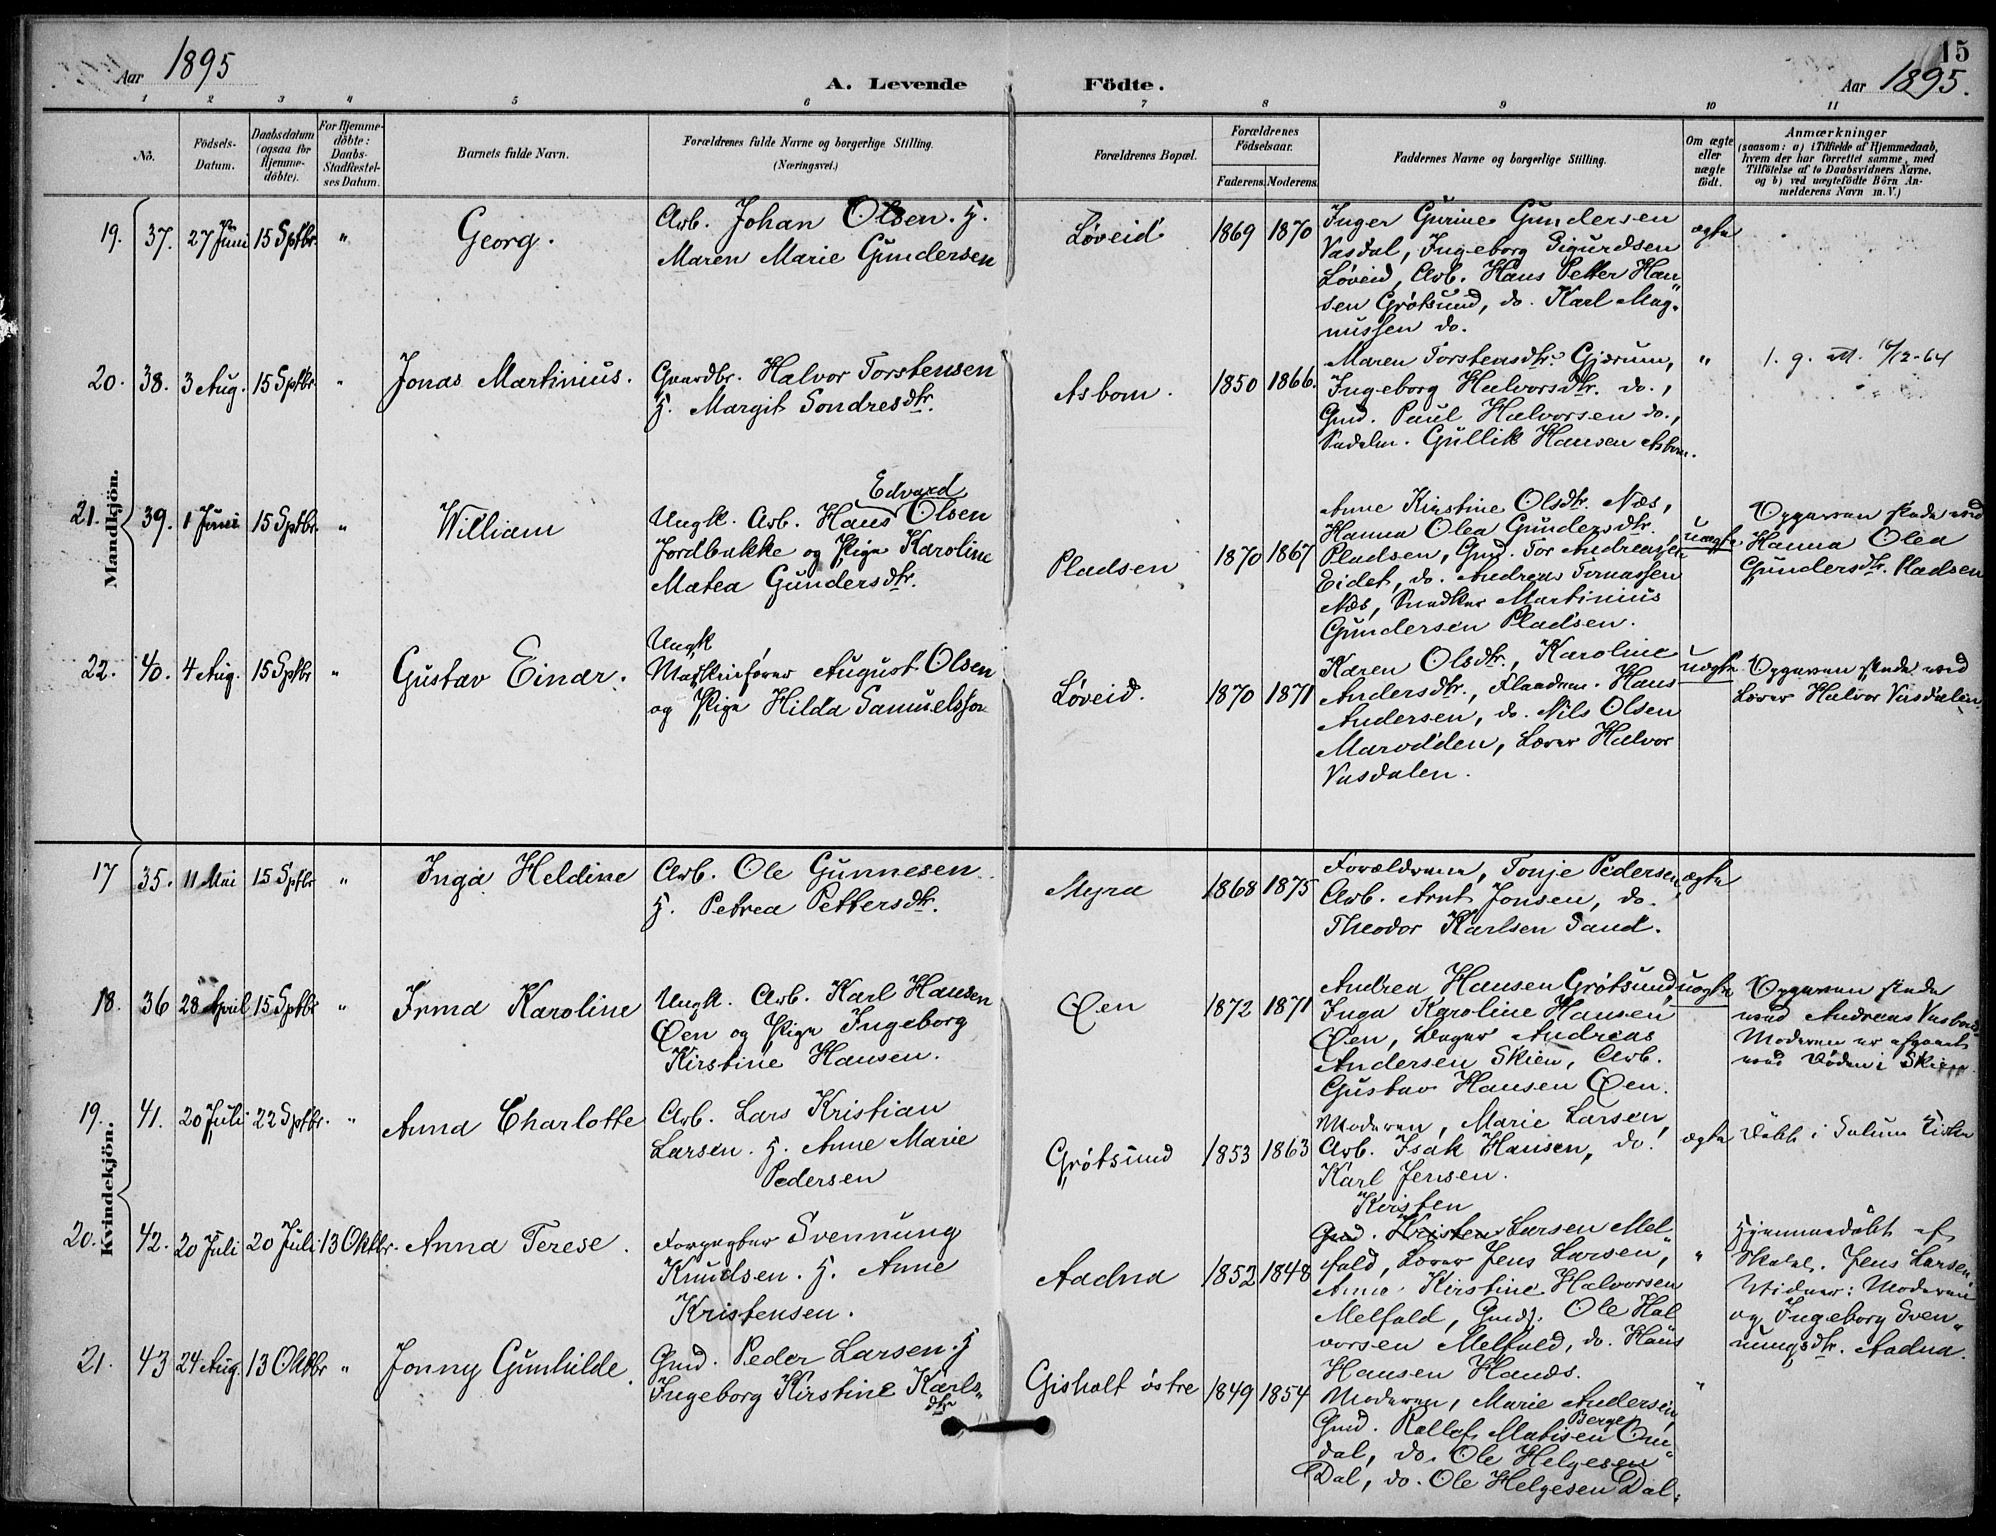 15
Aar 1895
A. Levende Födte.
Aar 1895.
1 2 3 4 5 6 7 8 9 10 11
No.
Födsels-
Datum.
Daabsdatum
(ogsaa for
Hjemme-
döbte).
For Hjemme-
döbte:
Daabs-
Stadfæstel-
ses Datum.
Barnets fulde Navn.
Forældrenes fulde Navne og borgerlige Stilling.
(Næringsvei.)
Forældrenes Bopæl.
Forældrenes
Födselsaar.
Faderens. Moderens.
Faddernes Navne og borgerlige Stilling.
Om ægte
eller
uægte
födt.
Anmærkninger
(saasom: a) i Tilfælde af Hjemmedaab,
hvem der har forrettet samme, med
Tilföielse af to Daabsvidners Navne.
og b) ved uægtefödte Börn An-
melderens Navn m. V.)
Mandkjön.
19. 37. 27 Juni 15 Sptbr. " Georg.
Arb. Johan Olsen. H.
Maren Marie Gundersen
Løveid 1869 1870
Inger Gurine Gundersen
Vasdal, Ingeborg Sigurdsen
Løveid, Arb. Hans Petter Han„
sen Grøtsund, do. Karl Mag„
nussen do.
ægte
20. 38. 3 Aug. 15 Sptbr. " Jonas Martinius.
Gaardbr. Halvor Torstensen
H. Margit Sondresdtr.
Asbom. 1850 1866.
Maren Torstensdtr. Gjærum,
Ingeborg Halvorsdtr. do.,
Gmd. Paul Halvorsen do.,
Gullik Hansen Asbom.
"
1. g. 12-64
21. 39. 1 Juni 15 Sptbr. " William
Edvard
Ungk. Arb. Hans Olsen
Jordbakke og Pige Karoline
Matea Gundersdtr.
Pladsen 1870 1867
Anne Kirstine Olsdtr. Næs,
Hanna Olea Gundersdtr.
Pladsen, Gmd. Tor Andreassen
Eidet, do. Andreas Tomassen
Næs, Snedker Martinius
Gundersen Pladsen.
uægte
Opgaven skede ved
Hanna Olea
Gundersdtr. Pladsen
22. 40. 4 Aug. 15 Sptbr " Gustav Einar.
Ungk
Maskinfører August Olsen
og Pige Hilda Samuelsson
Løveid. 1870 1871
Karen Olsdtr., Karoline
Andersdtr., Hans
Andersen, do. Nils Olsen
Marodden, Lærer Halvor
Vasdalen.
uægte
Opgaven skede ved
Lærer Halvor Vasdalen
Kvindekjön.
17 35. 11 Mai 15 Sptbr " Inga Heldine
Arb. Ole Gunnesen
H. Petrea Pettersdtr.
Myra 1868 1875
Forældrene, Tonje Pedersen,
Arb. Arnt Jonsen, do.
Theodor Karlsen Sand.
ægte
18. 36 28 April 15 Sptbr " Irma Karoline
Ungk. Arb. Karl Hansen
Øen og Pige Ingeborg
Kirstine Hansen.
Øen 1872 1871
Andrea Hansen Grøtsund,
Inga Karoline Hansen
Øen, Andreas
Andersen Skien, Arb.
Gustav Hansen Øen.
uægte
Opgaven skede
ved Andreas
Moderen er afgaaet
ved Døden i Skien
19. 41. 20 Juli 22 Sptbr. " Anna Charlotte
Arb. Lars Kristian
Larsen. H. Anne Marie
Pedersen
Grøtsund 1853 1863
Moderen, Marie Larsen,
Arb. Isak Hansen, do.
Karl Jensen.
ægte
Døbt i Solum Kirke
20. 42. 20 Juli 20 Juli 13 Oktbr. Anna Terese.
Forpagter Svennung
Knudsen. H. Anne
Kristensen.
Aadna 1852 1848
Kirsten
Gmd. Kristen Larsen Mel„
fald, Lærer Jens Larsen,
Anne Kirstine Halvorsen
Melfald, Gmd. Ole Hal
vorsen Melfald, do. Hans
Hansen Hauds.
"
Hjemmedøbt af
Jens Larsen.
Vidner: Moderen
og Ingeborg Sven„
nungsdtr. Aadna.
21. 43 24 Aug. 13 Oktbr " Jonny Gunhilde.
Gmd. Peder Larsen. H
Ingeborg Kirstine Karls„
dtr
Gisholt østre 1849 1854
Moderen, Marie Andersen,
Berge
Gmd. Rollef Matisen Om„
dal, do. Ole Helgesen
Dal, do. Ole Helgesen Dal.
"